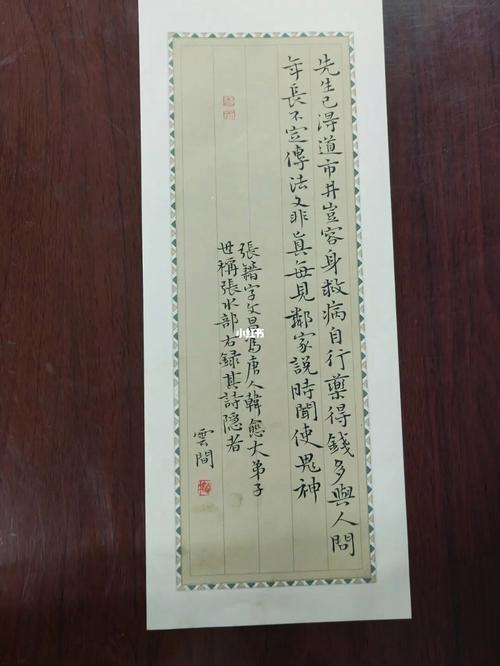 先生已淂道市井豈容身救病自行藥得錢多與人問
年長不定傳法又非真每見鄰家說時聞使鬼神
張籍字文昌為唐人韓愈大弟子
世稱張水部右錄其詩隐者
雲間
小红书